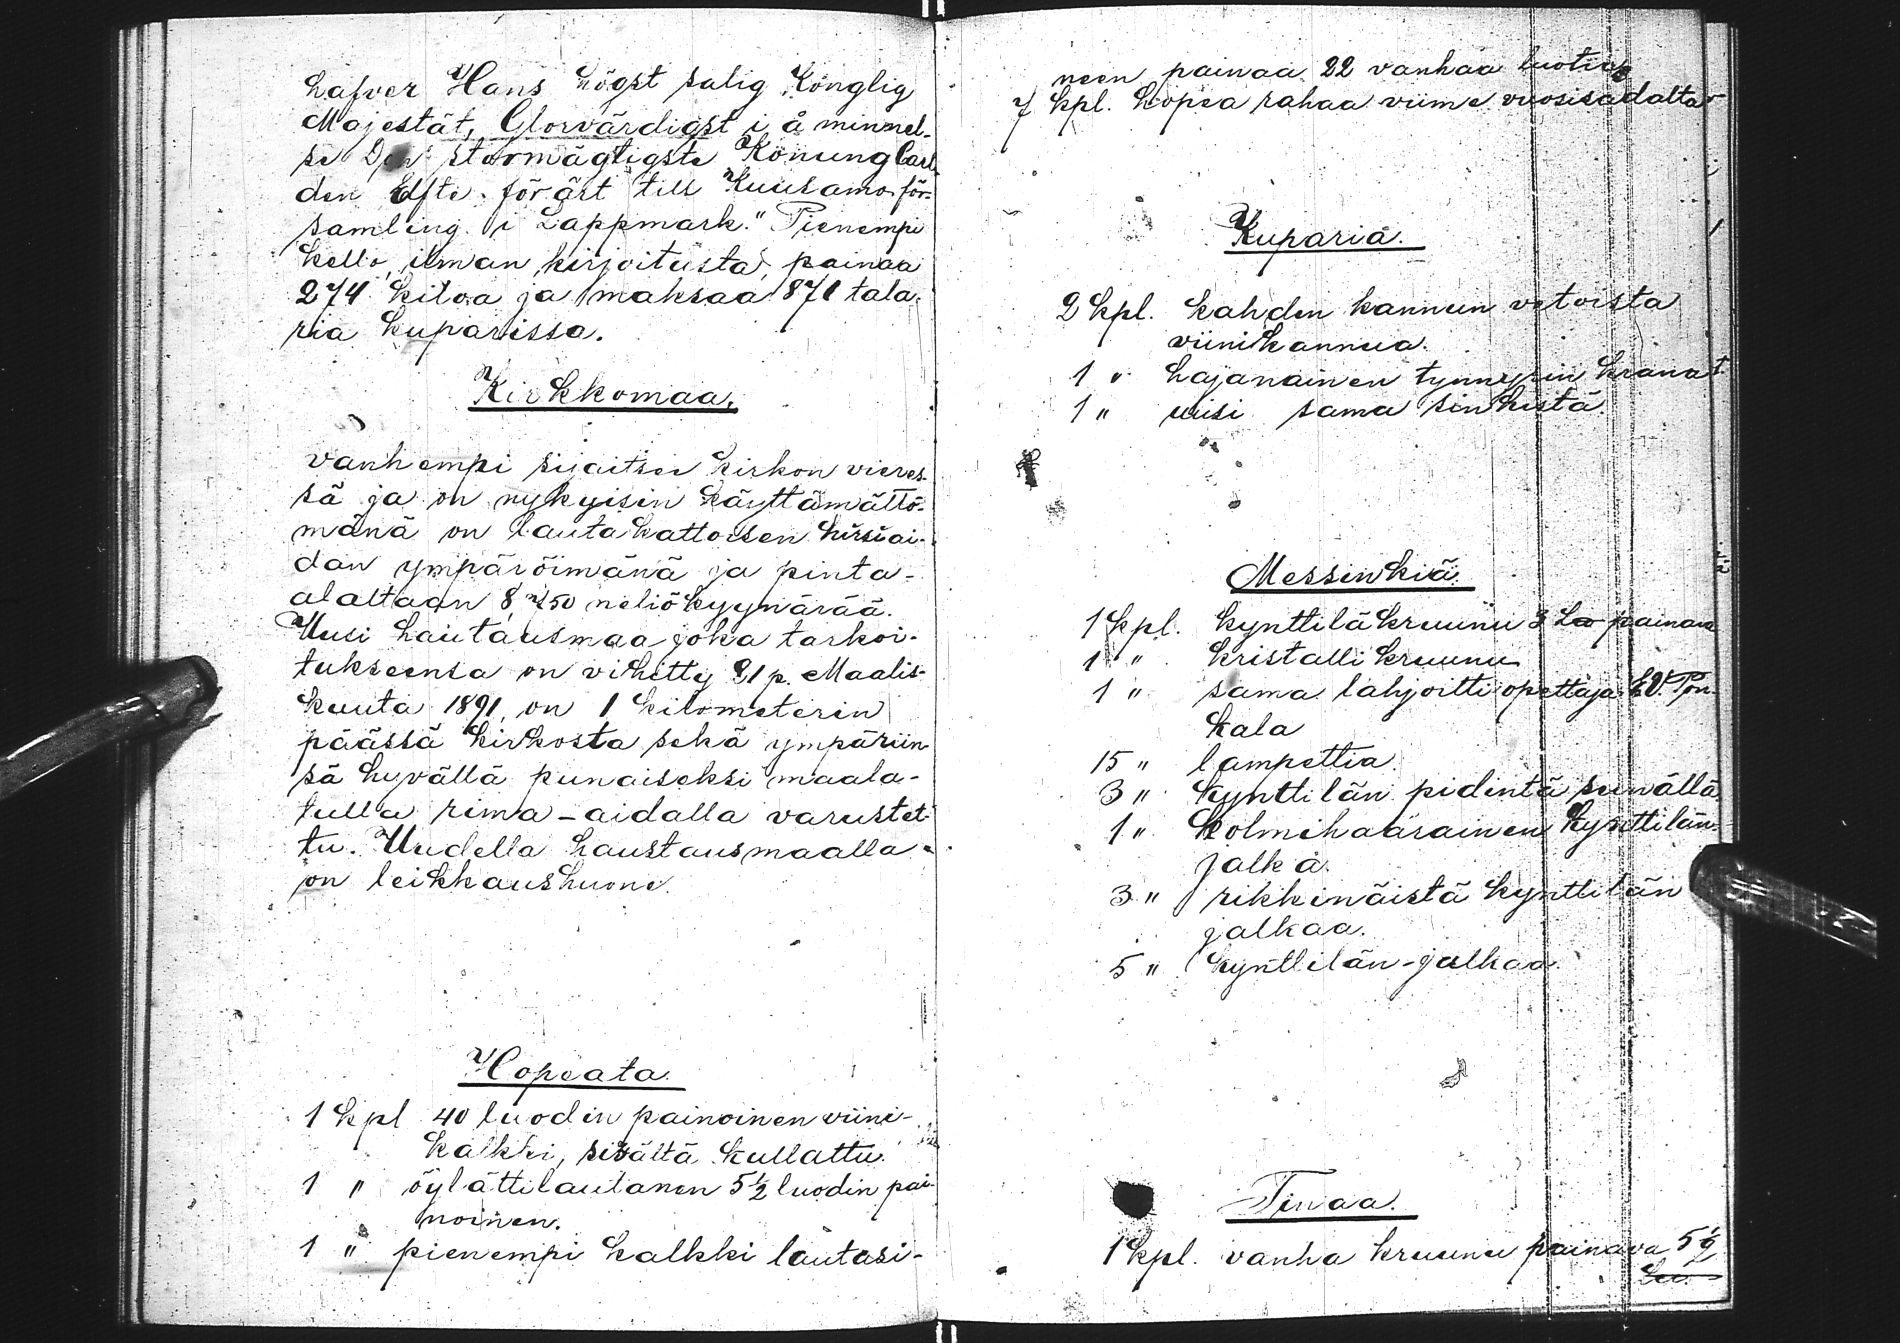 hafver Hans högst salig Könglig
Majestät, Glorvärdigst i å minnel-
se Den stormägtigste Konung Carl
den Elfte förärt till Kuusamo för-
samling i Lappmark." Pienempi
kello, ilman kirjoitusta, painaa
274 kiloa ja maksaa 871 tala-
ria kuparissa.
Kirkkomaa,
vanhempi sijaitsee kirkon vieres-
sä ja on nykyisin käyttämättö-
mänä on lautakattoisen hirsiai-
dan ympäröimänä ja pinta-
alaltaan 8,750 neliökyynärää.
Uusi hautausmaa joka tarkoi-
tukseensa on vihitty 21 p. Maalis-
kuuta 1891, on 1 kilometerin
päässä kirkosta sekä ympäriin-
sä hyvällä punaiseksi maala-
tulla rima-aidalla varustet-
tu. Uudella haustausmaalla
on leikkaushuone.
Hopeata.
1 kpl 40 luodin painoinen viini-
kalkki, sisältä kullattu.
1 " öylättilautanen 5½ luodin pai-
noinen.
1 " pienempi kalkki lautasi-
neen painaa 22 vanhaa luotia
7 kpl. hopea rahaa viime vuosisadalta
Kuparia.
2 kpl. kahden kannun vetoista
viinikannua.
1 " hajanainen tynnyrin kranat
1 " uusi sama sinkistä.
Messinkiä.
1 kpl. kynttiläkruunu 3 painava
1 " kristalli kruunu
1 " sama lahjoitti opettaja
kala
15 " lampettia
3 " kynttilän pidintä seinällä
1 " kolmihaarainen kynttilän-
jalka.
3 " rikkinäistä kynttilän
jalkaa.
5 " kynttilän-jalkaa.
Tinaa.
1 kpl. vanha kruunu painava 5½